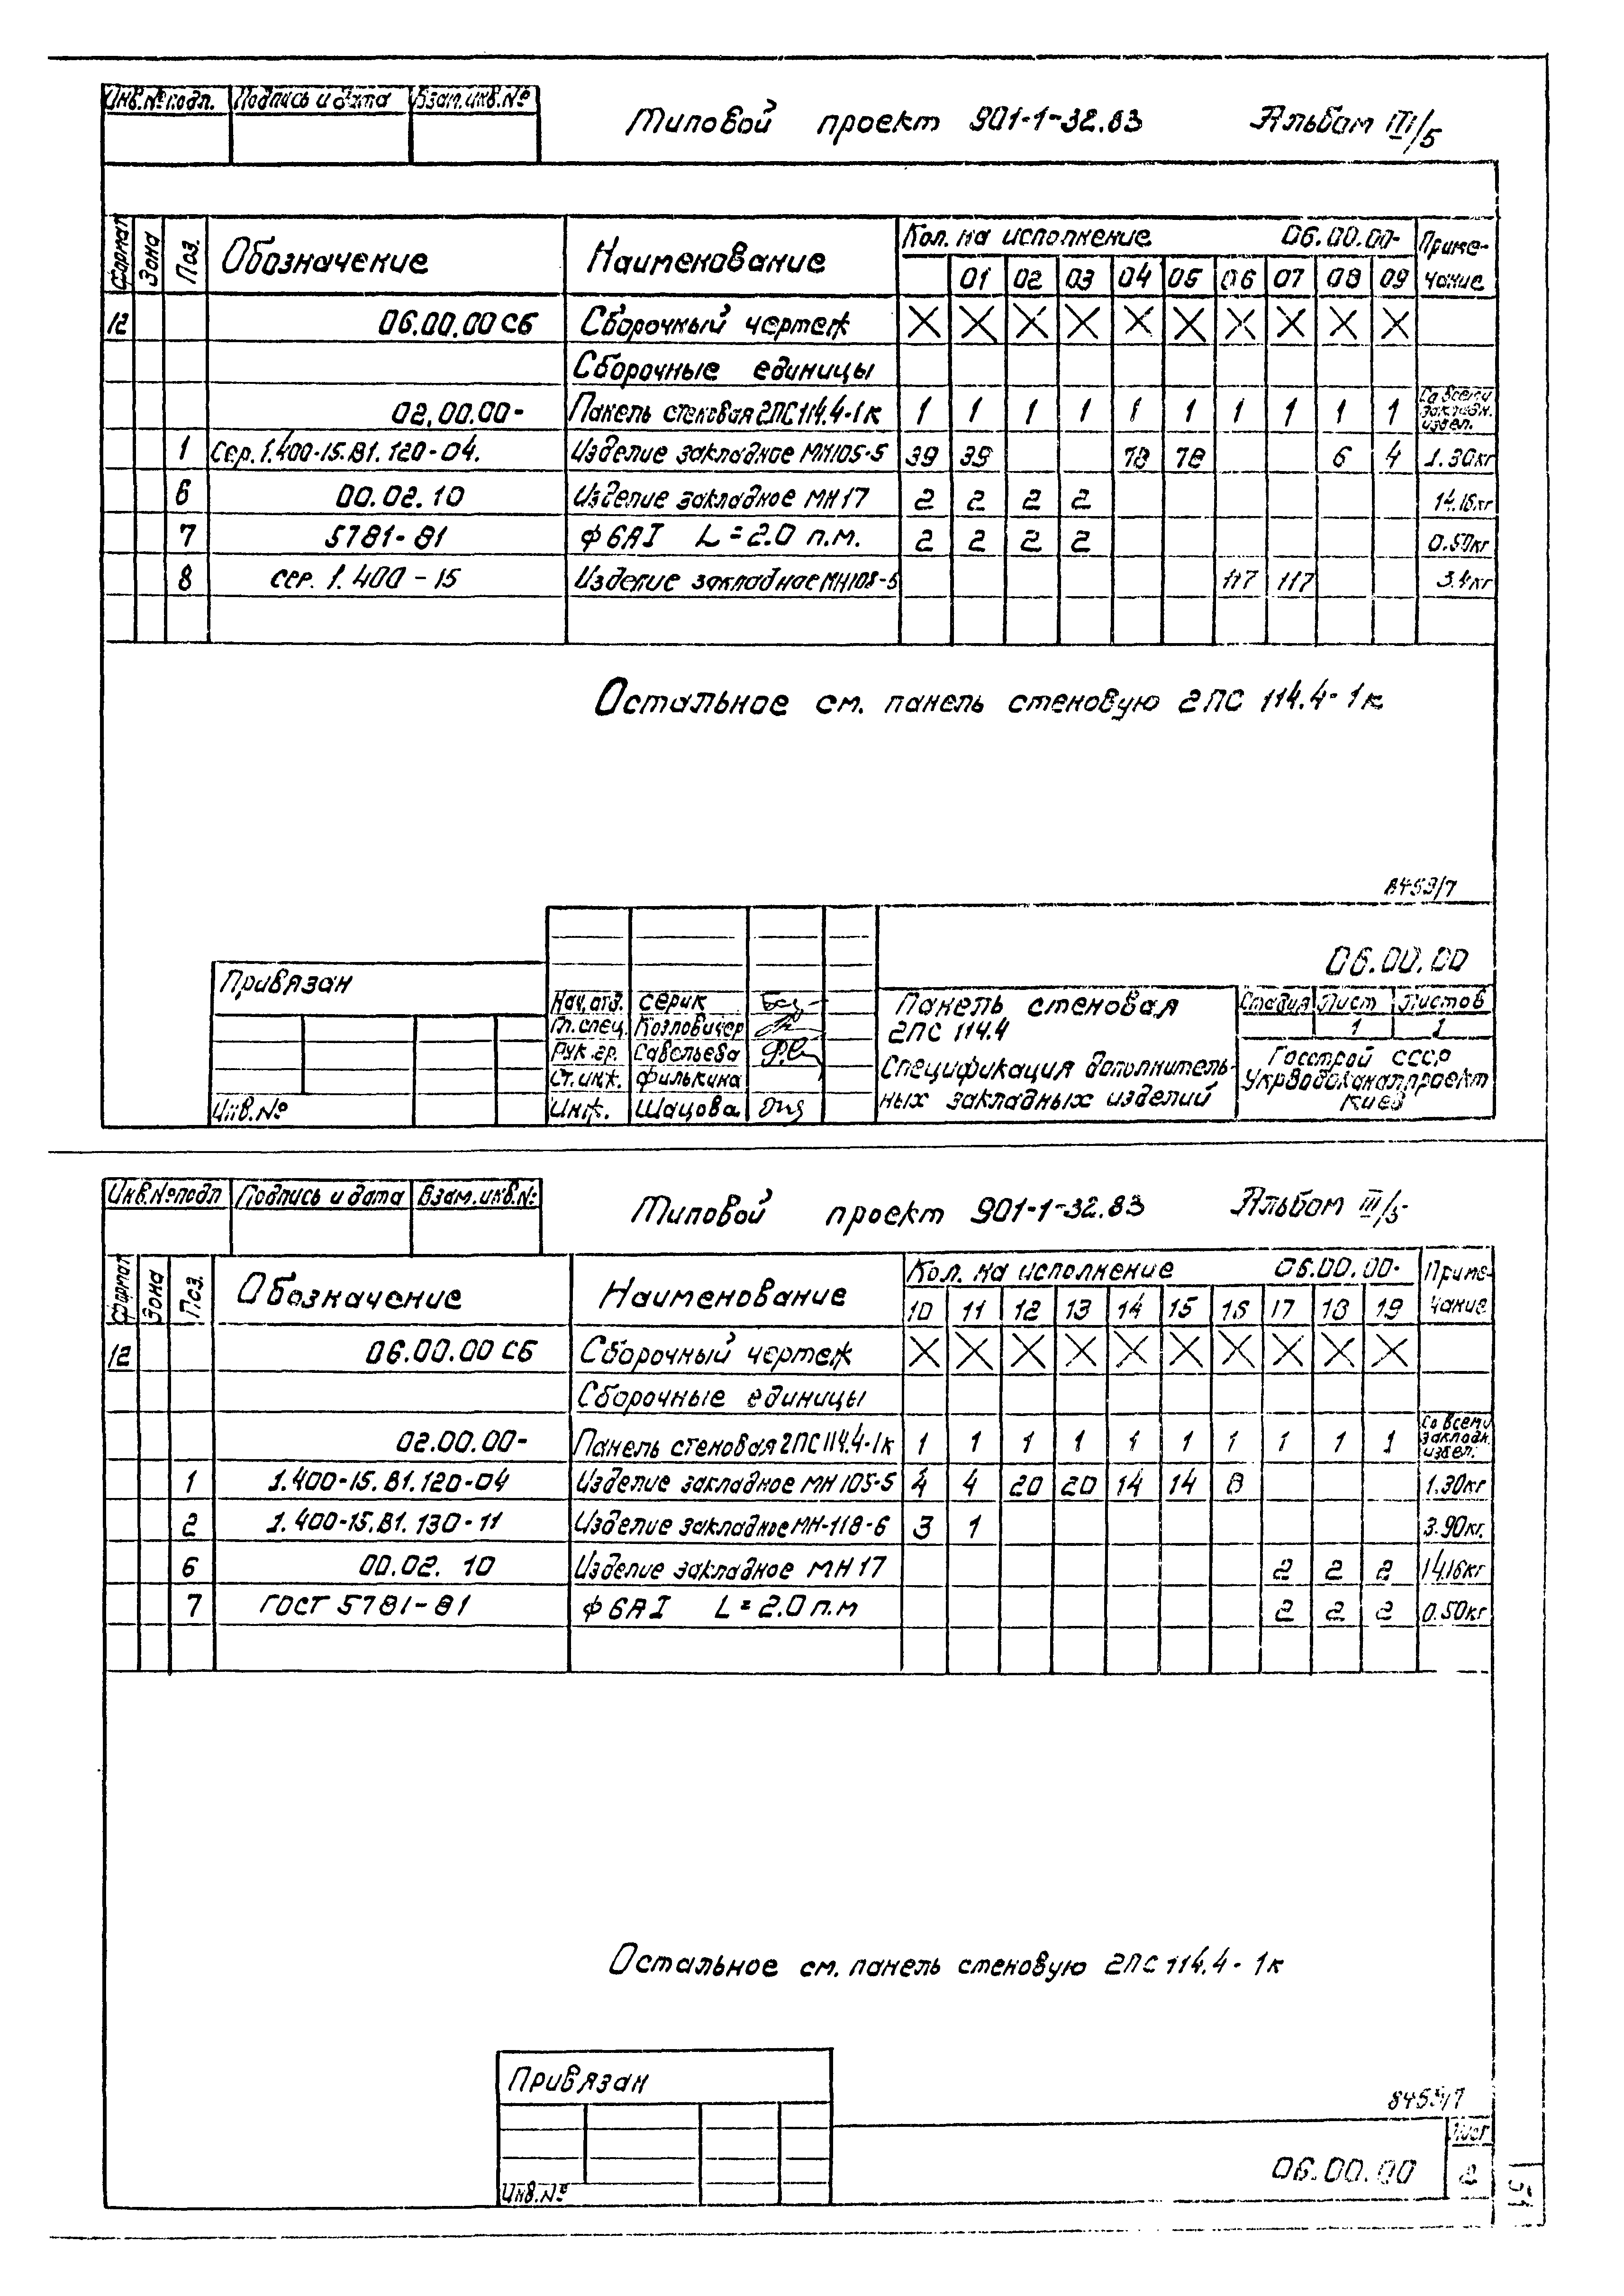 Инв.№подл. Подпись и дата Взам.инв.№
Типовой проект 901-1-32.83 Альбом III/5
Формат Зона Поз. Обозначение Наименование Кол. на исполнение 06.00.00- Приме-
01 02 03 04 05 06 07 08 09 чание
12 06.00.00 СБ Сборочный чертеж X X X X X X X X X X
Сборочные единицы
02.00.00- Панель стеновая 2ПС114.4-1к 1 1 1 1 1 1 1 1 1 1 Со всеми закладн. издел.
1 Сер.1.400-15.В1.120-04. Изделие закладное МН105-5 39 39 78 78 6 4 1.30кг
6 00.02.10 Изделие закладное МН17 2 2 2 2 14.16кг
7 5781-81 ф6АI L=2.0 п.м. 2 2 2 2 0.50кг
8 сер. 1.400-15 Изделие закладное МН108-5 117 117 3.4кг
Остальное см. панель стеновую 2ПС 114.4-1к
8453/7
06.00.00
Привязан
Инв.№
Нач.отд. Серик
Гл.спец. Козловичер
Рук.гр. Савельева
Ст.инж. Филькина
Инж. Шацова
Панель стеновая
2ПС 114.4
Спецификация дополнитель-
ных закладных изделий
Стадия Лист Листов
1 1
Госстрой СССР
Укрводоканалпроект
Киев
Инв.№подл Подпись и дата Взам.инв.№
Типовой проект 901-1-32.83 Альбом III/5
Формат Зона Поз. Обозначение Наименование Кол. на исполнение 06.00.00- Приме-
10 11 12 13 14 15 16 17 18 19 чание
12 06.00.00 СБ Сборочный чертеж X X X X X X X X X X
Сборочные единицы
02.00.00- Панель стеновая 2ПС114.4-1к 1 1 1 1 1 1 1 1 1 1 Со всеми закладн. издел.
1 1.400-15.В1.120-04 Изделие закладное МН105-5 4 4 20 20 14 14 8 1.30кг
2 1.400-15.В1.130-11 Изделие закладное МН-118-6 3 1 3.90кг.
6 00.02.10 Изделие закладное МН17 2 2 2 14.16кг
7 ГОСТ 5781-81 ф6АI L=2.0 п.м 2 2 2 0.50кг
Остальное см. панель стеновую 2ПС 114.4-1к
Привязан
Инв.№
8453/7
06.00.00
Лист
2
51